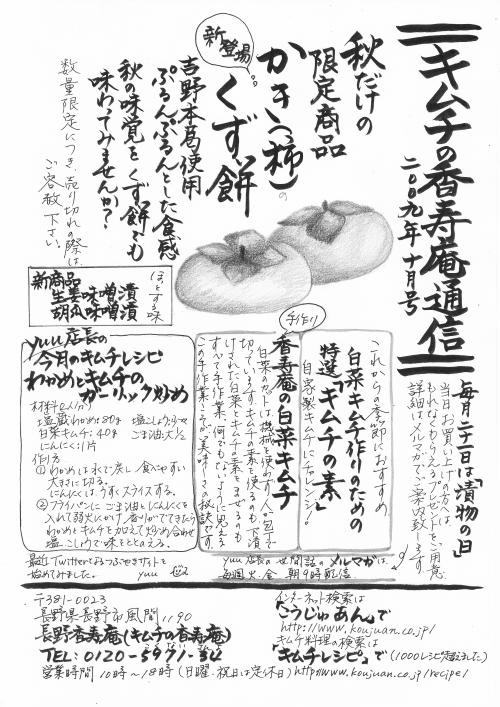 キムチの香寿庵通信
二〇〇九年十月号
毎月二十一日は「漬物の日」
当日お買い上げの方へは、
もれなくもらえるプレゼントをご用意
詳細はメルマガでご案内致します。
秋だけの
限定商品
かき(柿)の
くず餅
新登場
吉野本葛使用
ぷるんぷるんとした食感
秋の味覚をくず餅でも
味わってみませんか?
数量限定につき、売り切れの際は、
ご容赦下さい。
ほっとする味
新商品
生姜味噌漬
胡瓜味噌漬
これからの季節におすすめ
白菜キムチ作りのための
特選「キムチの素」
自家製キムチにチャレンジ!
手作り
香寿庵の白菜キムチ
白菜のカットは機械を使わず一人一包丁で
切っています。キムチの素を使るのも、下漬
けされた白菜とキムチの素をまぜるのも
すべて手作業。何でもないように思える
この手作業こそが美味しさの秘訣です。
yuu店長の
今月のキムチレシピ
わかめとキムチの
ガーリック炒め
材料(2人分)
塩蔵わかめ:80g 塩こしょう:少々
白菜キムチ:40g ごま油:大1/2
にんにく:1片
作り方
①わかめは水で戻し 食べやすい
大きさに切る。
にんにくは、うすくスライスする。
②フライパンに ごま油とにんにくを
入れて弱火にかけ、香りがでてきたら
わかめとキムチを加えて炒め合わせ
塩こしょうで味をととのえる。
最近Twitterなるつぶやきサイトを
始めてみました。 yuu
yuu店長の世間話のメルマガは、
毎週火、金 朝9時配信
〒381-0023
長野県長野市風間1190
長野香寿庵(キムチの香寿庵)
TEL:0120-5971-34
営業時間 10時〜18時(日曜・祝日は定休日)
インターネット検索は
「こうじゅあん」で
http://www.koujuan.co.jp/
キムチ料理の検索は
「キムチレシピ」で(1000レシピ超えました)
http://www.koujuan.co.jp/recipe/